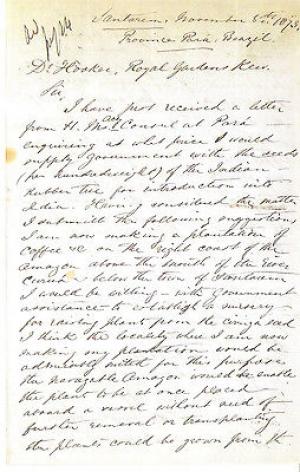 Santarem, November 8th 1873,
Province Pará, Brazil
Dr Hooker, Royal Gardens Kew.
Sir,
I have just received a letter
from H. Ms Consul at Pará
enquiring at what price I would
supply government with the seeds
(per hundredweight) of the Indian
Rubber tree for introduction into
India. Having considered the matter
I submit the following suggestion,
I am now making a plantation of
coffee &c on the right coast of the
Amazon above the mouth of the river
Curua & below the town of Santarem
I would be willing with Government
assistance to establish a nursery
for raising plants from the seed
I think the locality where I am now
making my plantation would be
admirably suited for this purpose
the navigable Amazon would enable
the plants to be at once placed
aboard a vessel without need of
further removal or transplanting
the plants could be grown from th